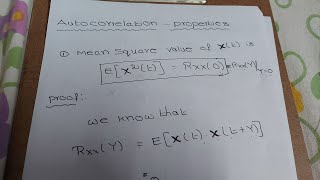 Autocorrelation - properties
① Mean Square value of X(t) is
E[X²(t)] = RXX(0) = RXX(γ)|γ=0
proof:-
we know that
RXX(γ) = E[X(t). X(t+γ)]